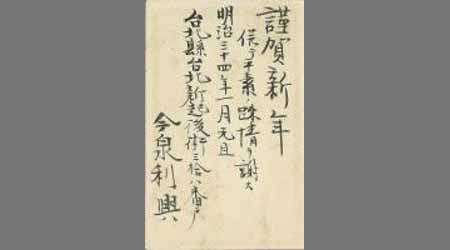 謹賀新年
併テ平素ノ疎情ヲ謝ス
明治三十四年一月元旦
台北縣台北新起後街三拾八番戸
今泉利興